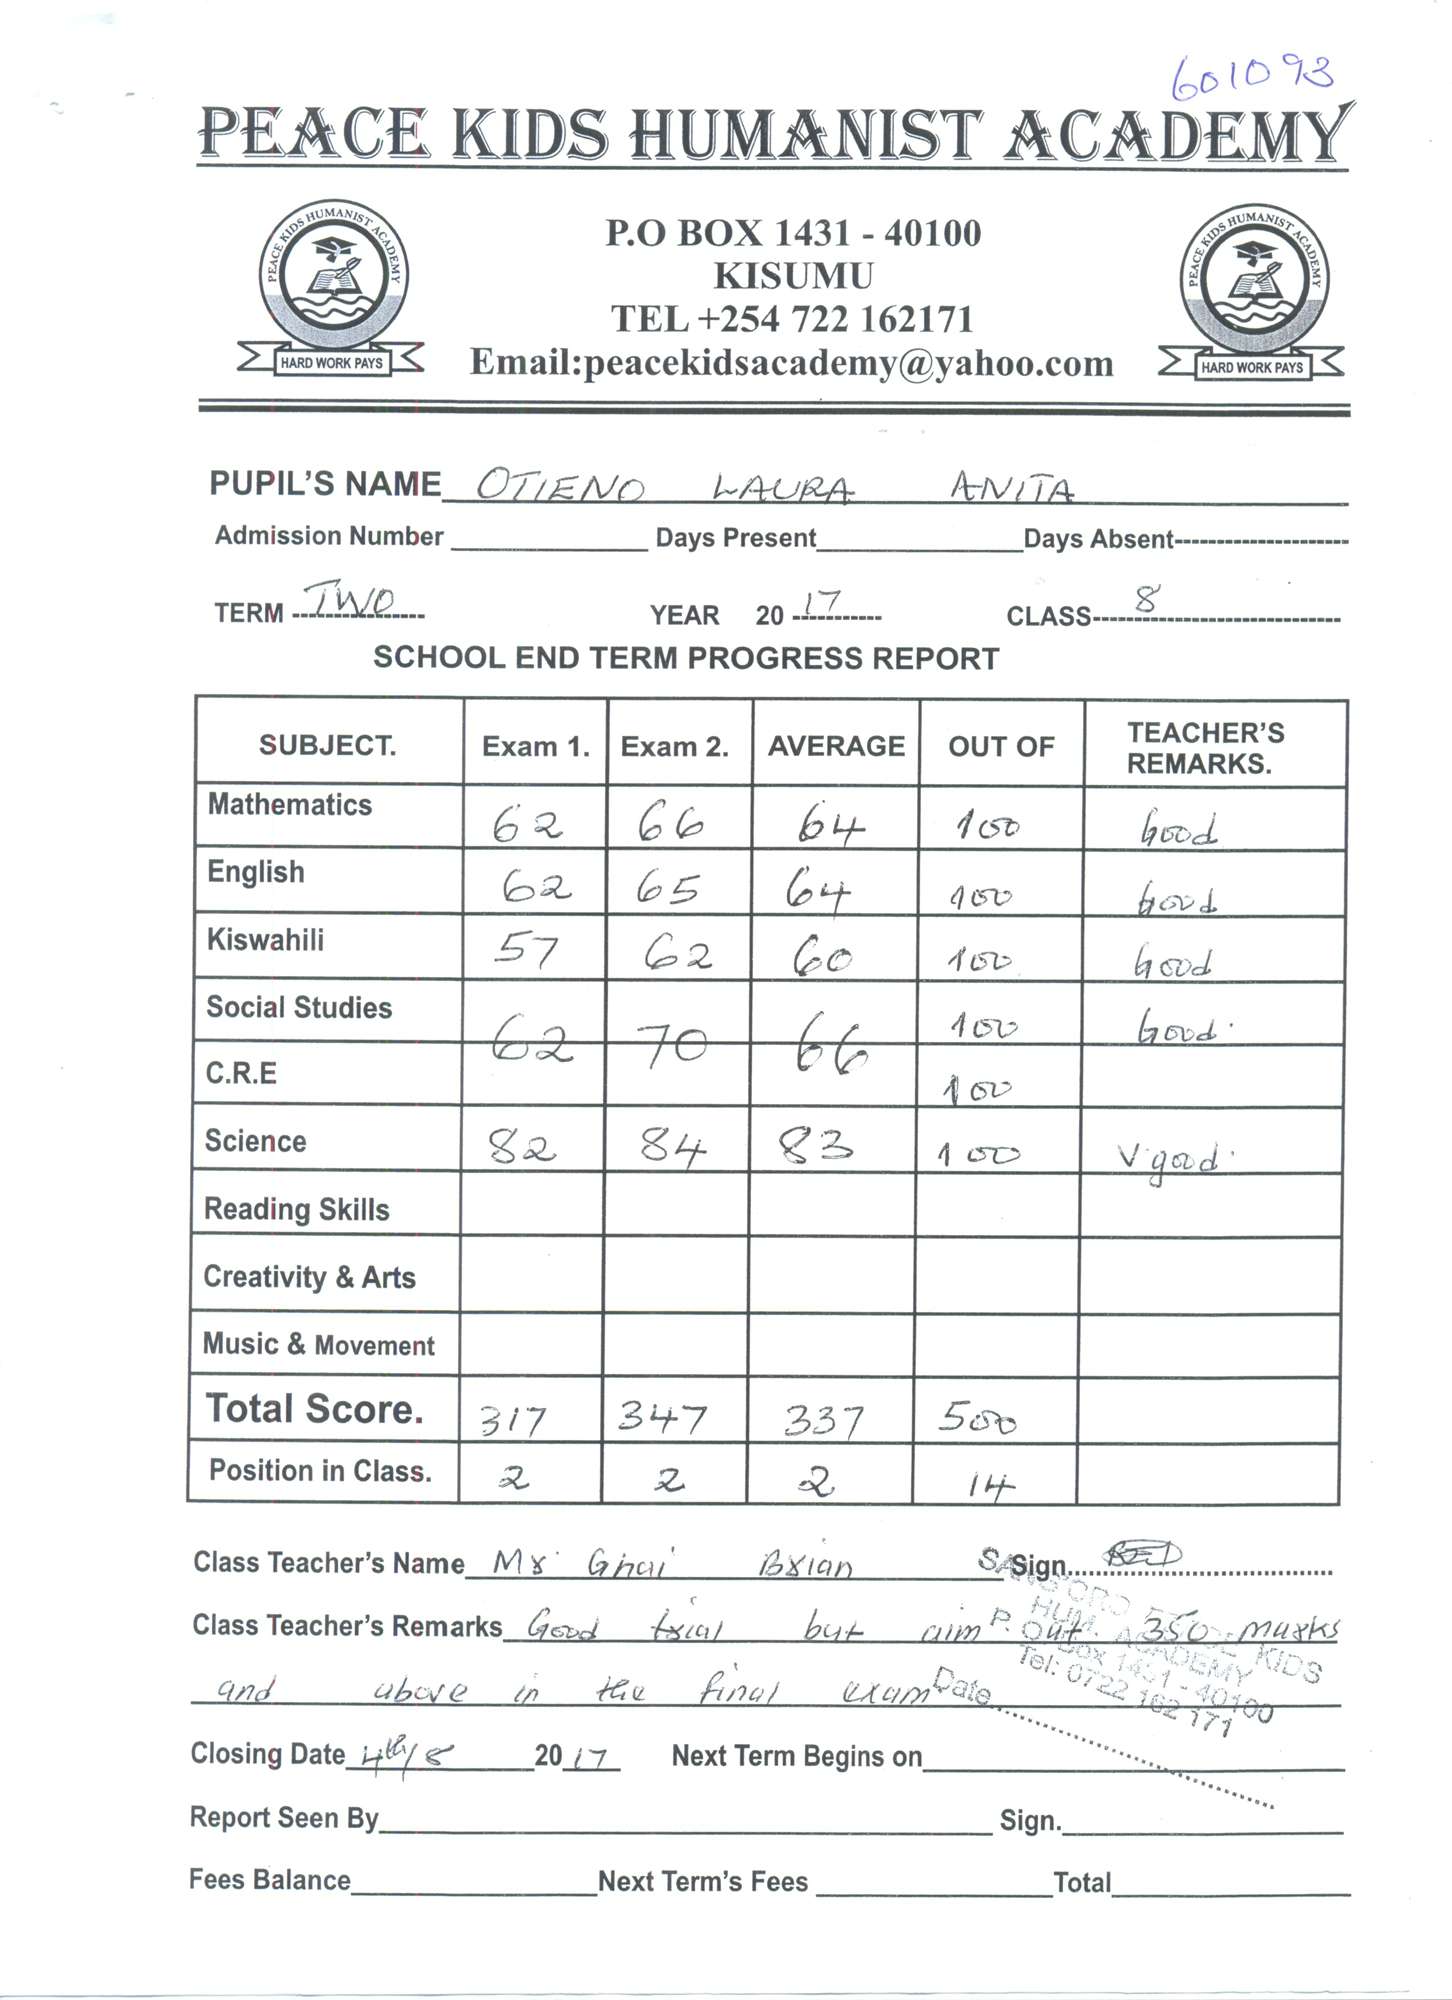 601093
PEACE KIDS HUMANIST ACADEMY
PEACE KIDS HUMANIST ACADEMY
HARD WORK PAYS
P.O BOX 1431 - 40100
KISUMU
TEL +254 722 162171
Email:peacekidsacademy@yahoo.com
PEACE KIDS HUMANIST ACADEMY
HARD WORK PAYS
PUPIL'S NAME OTIENO LAURA ANITA
Admission Number Days Present Days Absent
TERM TWO YEAR 2017 CLASS 8
SCHOOL END TERM PROGRESS REPORT
SUBJECT. Exam 1. Exam 2. AVERAGE OUT OF TEACHER'S REMARKS.
Mathematics 62 66 64 100 Good
English 62 65 64 100 Good
Kiswahili 57 62 60 100 Good
Social Studies 62 70 66 100 Good.
C.R.E 100
Science 82 84 83 100 V.good.
Reading Skills
Creativity & Arts
Music & Movement
Total Score. 317 347 337 500
Position in Class. 2 2 2 14
Class Teacher's Name Mr Brian Sign.
Class Teacher's Remarks Good trial but aim at 350 marks
and above in the final exam
HUM. ACADEMY KIDS
P. O. Box 1431 - 40100
Tel: 0722 162 171
Date
Closing Date 4th/8 2017 Next Term Begins on
Report Seen By Sign.
Fees Balance Next Term's Fees Total